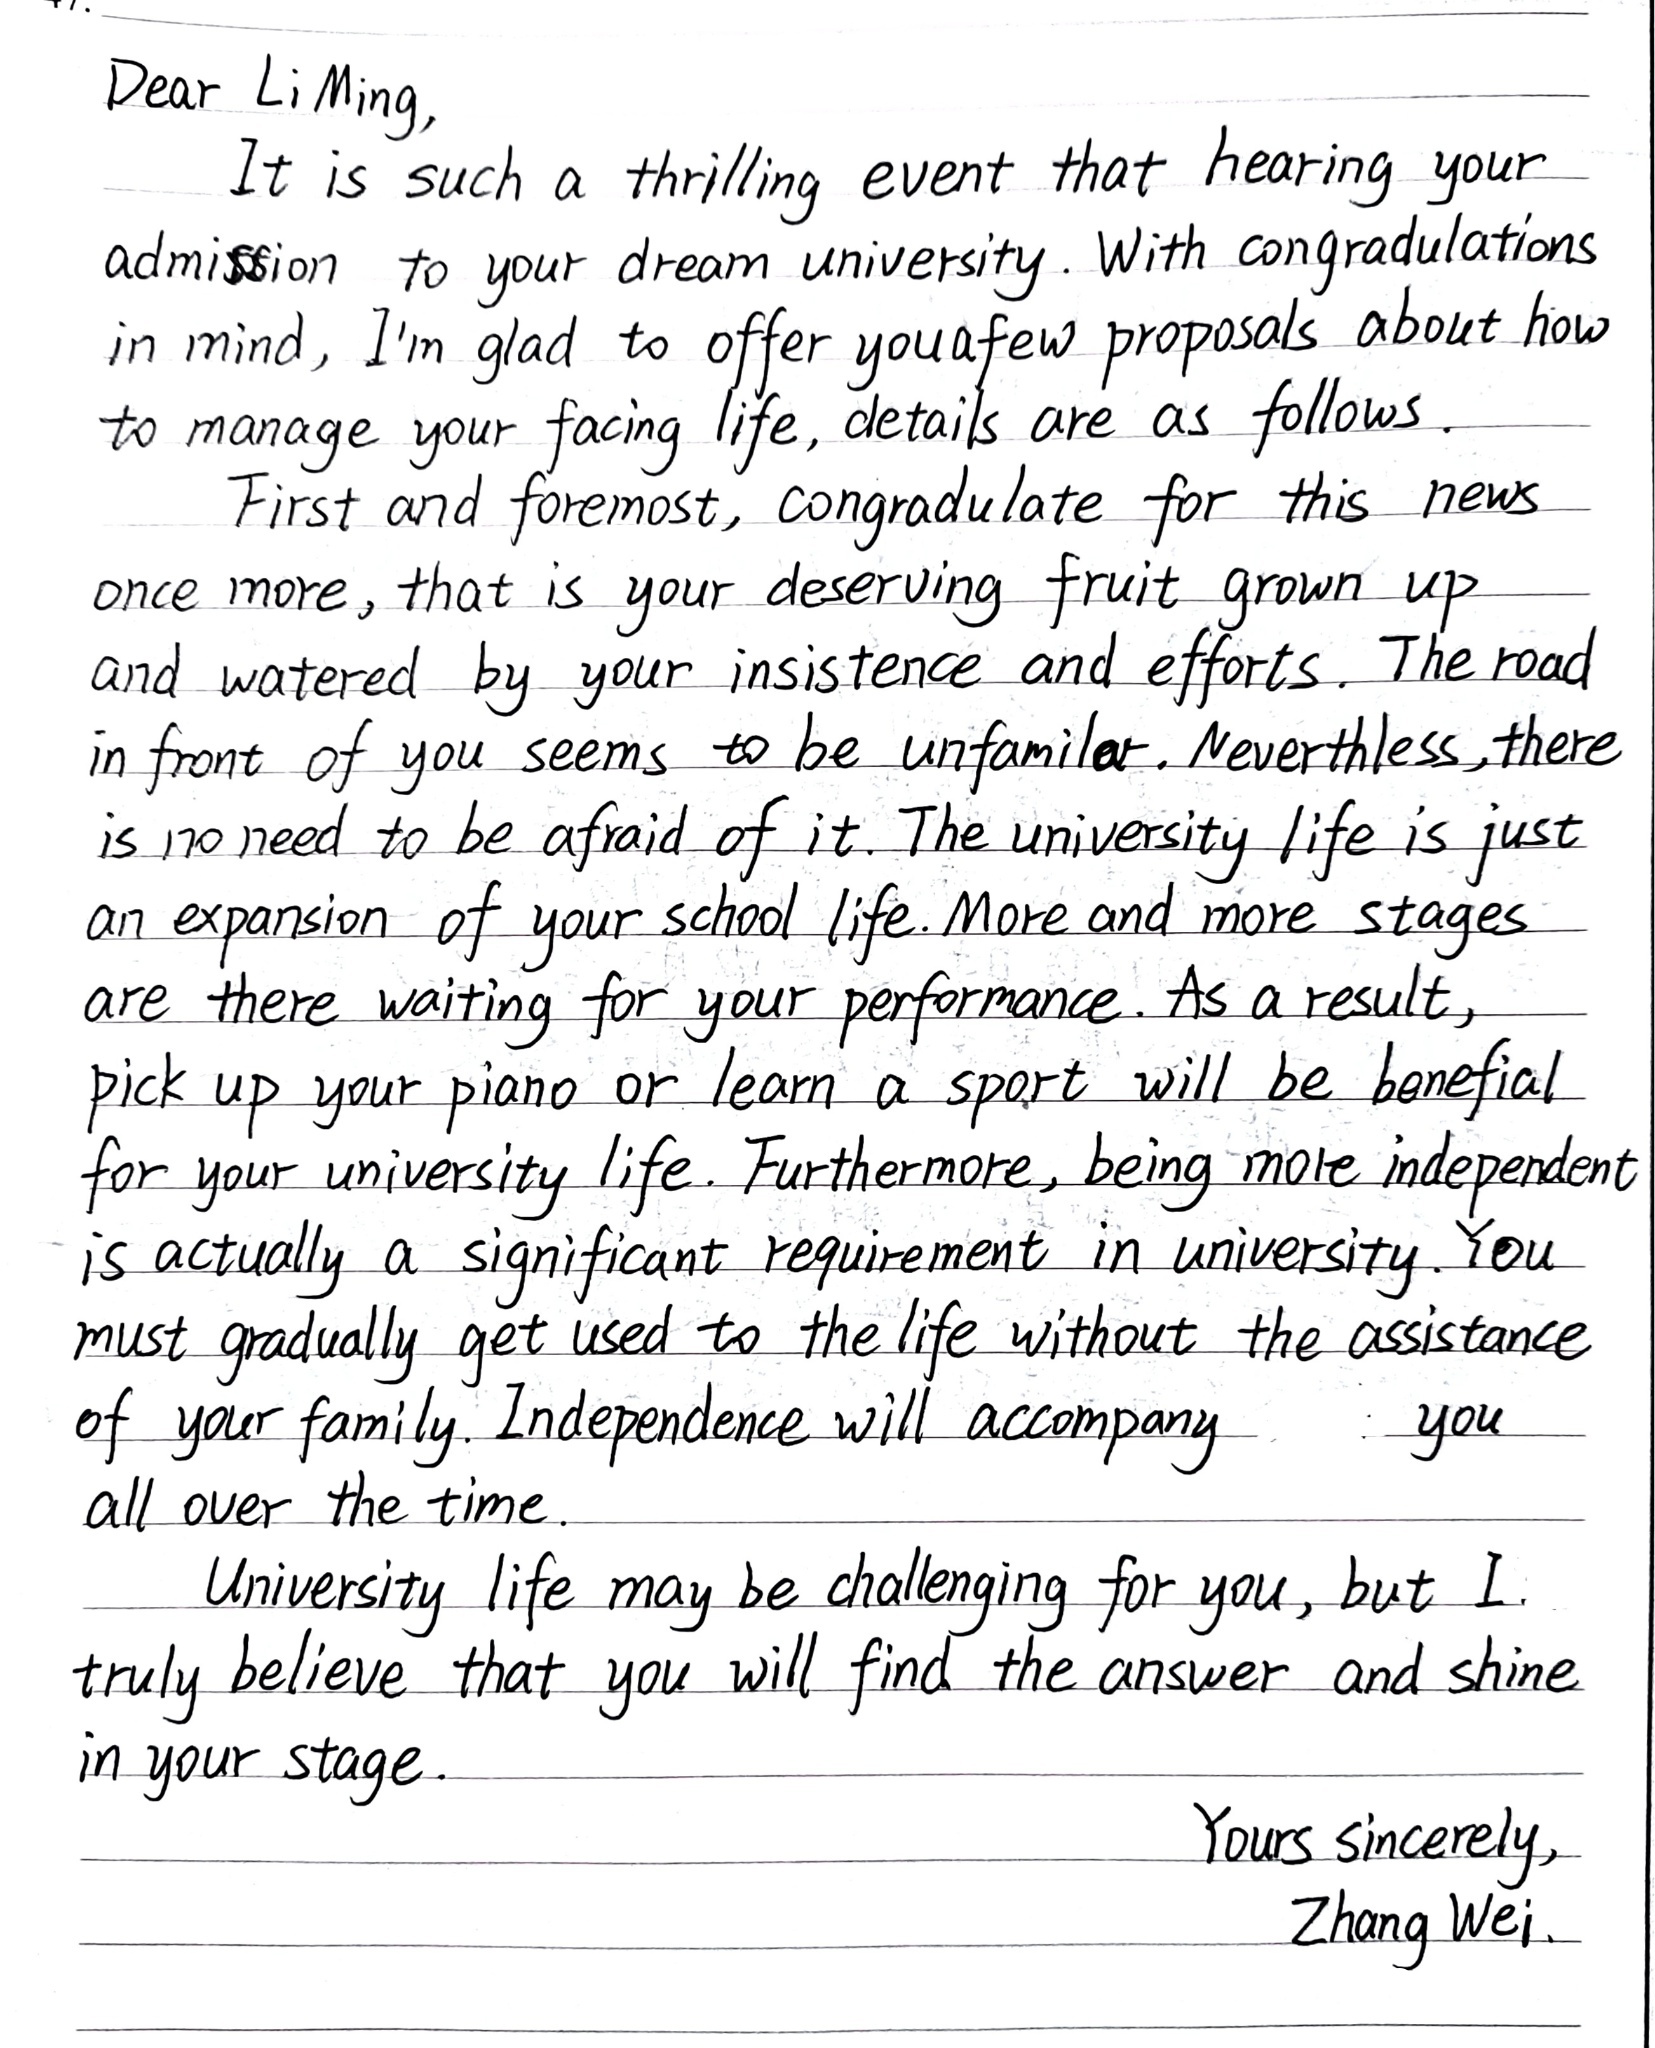 47.
Dear Li Ming,
It is such a thrilling event that hearing your
admission to your dream university. With congradulations
in mind, I'm glad to offer you a few proposals about how
to manage your facing life, details are as follows.
First and foremost, congradulate for this news
once more, that is your deserving fruit grown up
and watered by your insistence and efforts. The road
in front of you seems to be unfamilar. Neverthless, there
is no need to be afraid of it. The university life is just
an expansion of your school life. More and more stages
are there waiting for your performance. As a result,
pick up your piano or learn a sport will be benefial
for your university life. Furthermore, being more independent
is actually a significant requirement in university. You
must gradually get used to the life without the assistance
of your family. Independence will accompany you
all over the time.
University life may be challenging for you, but I
truly believe that you will find the answer and shine
in your stage.
Yours sincerely,
Zhang Wei.